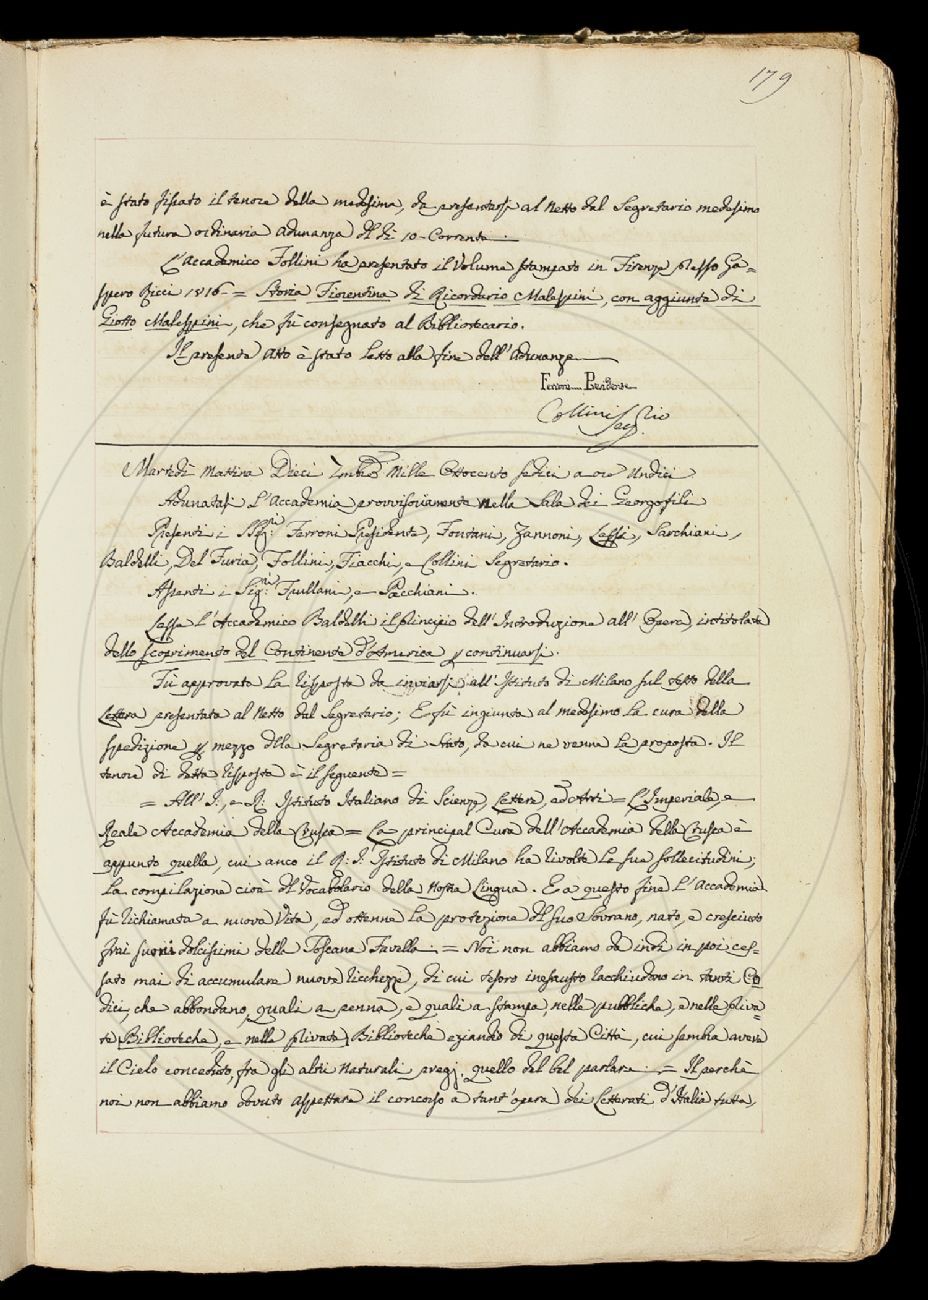 179
è stato fissato il tenore della medesima, da presentarsi al netto dal Segretario medesimo
nella futura ordinaria Adunanza del dì 10. Corrente.
L'Accademico Follini ha presentato il Volume stampato in Firenze presso Ga=
spero Ricci 1816 = Storia Fiorentina di Ricordano Malespini, con aggiunta di
Giotto Malespini, che fù consegnato al Bibliotecario.
Il presente Atto è stato Letto alla fine dell'Adunanza
Ferroni Presidente
Collini Seg.rio
Martedì Mattina Dieci Xmbre Mille Ottocento sedici a ore Undici
Adunatasi L'Accademia provvisoriamente nella Sala dei Georgofili
Presenti i SSig.ri Ferroni Presidente, Fontani, Zannoni, Lessi, Sarchiani,
Baldelli, Del Furia, Follini, Fiacchi, e Collini Segretario.
Assenti i Sig.ri Frullani, e Pacchiani.
Lesse L'Accademico Baldelli il principio dell'Introduzione all'Opera intitolata
dello scoprimento del Continente d'America p continuarsi.
Fù approvata La risposta da inviarsi all'Istituto di Milano sul testo della
Lettera presentata al Netto dal Segretario; E fù ingiunta al medesimo La cura della
spedizione p mezzo della Segreteria di Stato, da cui ne venne La proposta. Il
tenore di detta risposta è il seguente =
= All'I:, e R: Istituto Italiano di Scienze, Lettere, ed Arti = L'Imperiale, e
Reale Accademia della Crusca = La principal Cura dell'Accademia della Crusca è
appunto quella, cui anco il R: I: Istituto di Milano ha rivolte Le sue sollecitudini;
La compilazione cioè del Vocabolario della Nostra Lingua. E a questo fine L'Accademia
fù richiamata a nuova Vita, ed ottenne La protezione del suo Sovrano, nato, e cresciuto
frai suoni dolcissimi della Toscana Favella = Noi non abbiamo da indi in poi ces=
sato mai di accumulare nuove ricchezze, di cui tesoro inesausto racchiudono in tanti Co
dici, che abbondano, quali a penna, e quali a stampa, nelle pubbliche, e nelle priva=
te Biblioteche, e nelle private Biblioteche eziandio di questa Città, cui sembra avere
il Cielo conceduto, fra gli altri naturali pregj, quello del bel parlare. = Il perchè
noi non abbiamo dovuto aspettare il concorso a tant'opera dei Letterati d'Italia tutta,